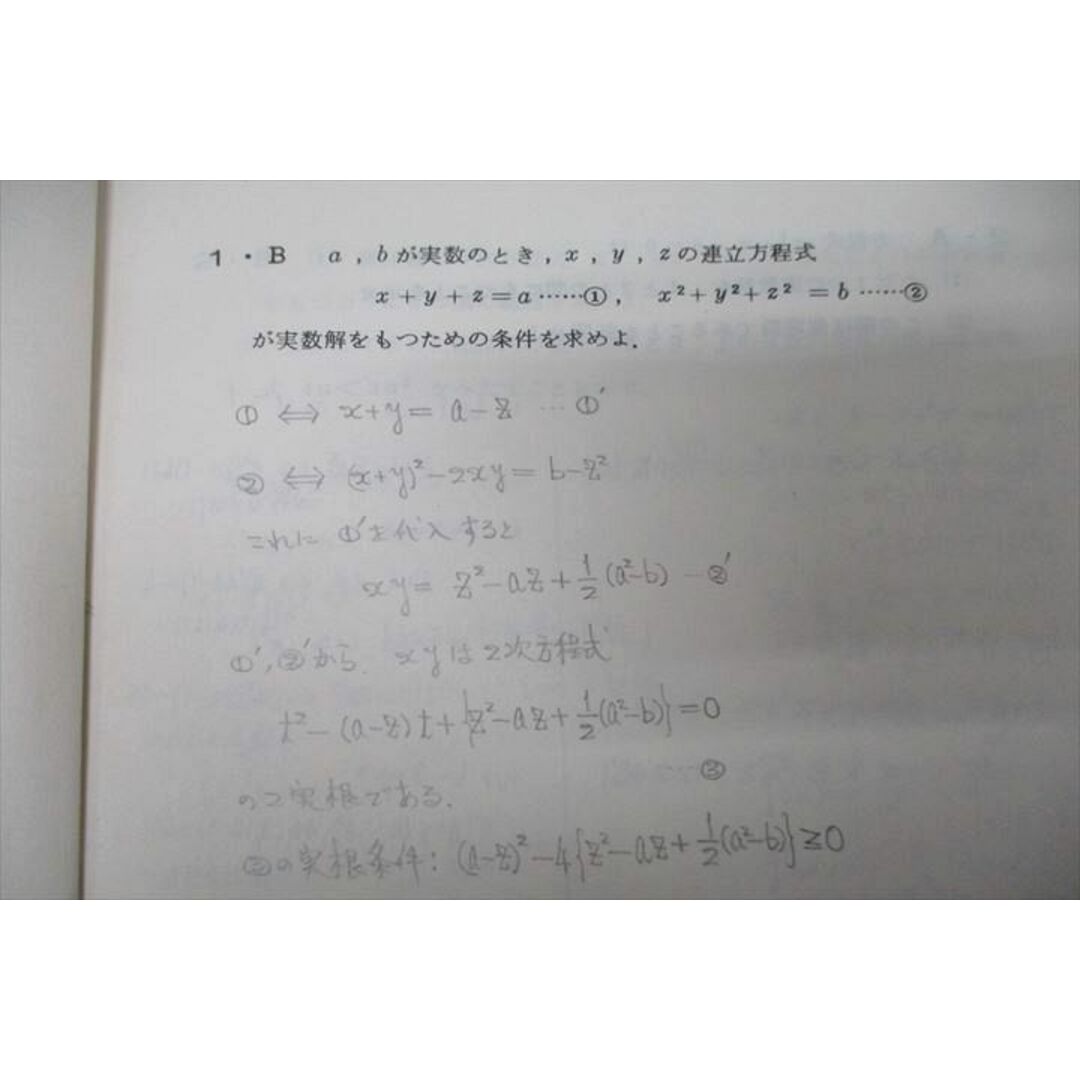 1・B a，bが実数のとき，x，y，zの連立方程式
x+y+z=a……①， x²+y²+z²=b……②
が実数解をもつための条件を求めよ．
① ⟺ x+y= a-z … ①′
② ⟺ (x+y)²-2xy= b-z²
これに ①′を代入すると
xy= z²-az+½(a²-b) …②′
①′,②′から, xyは2次方程式
t²-(a-z)t+{z²-az+½(a²-b)}=0
…③
の2実根である.
③の実根条件: (a-z)²-4{z²-az+½(a²-b)}≧0